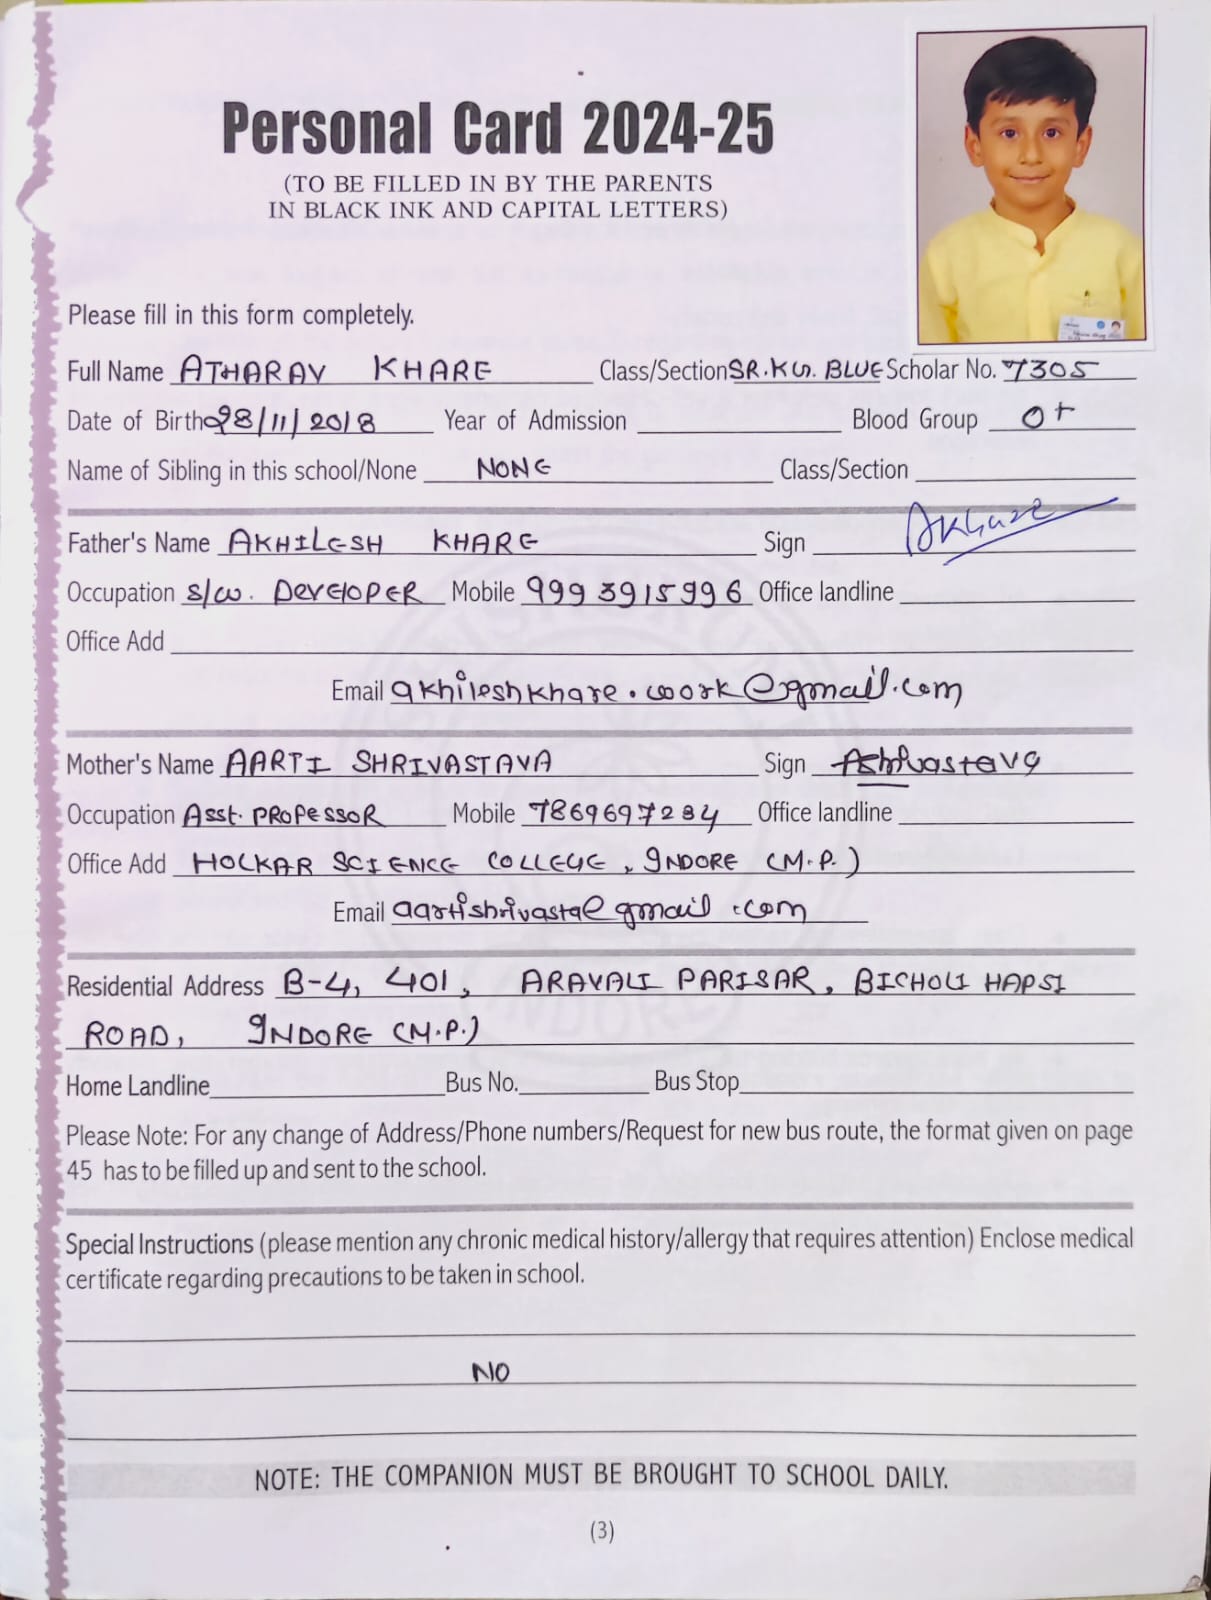 Personal Card 2024-25
(TO BE FILLED IN BY THE PARENTS
IN BLACK INK AND CAPITAL LETTERS)
Please fill in this form completely.
Full Name ATHARAV KHARE Class/Section SR.KG. BLUE Scholar No. 7305
Date of Birth 28/11/2018 Year of Admission Blood Group O+
Name of Sibling in this school/None NONE Class/Section
Father's Name AKHILESH KHARE Sign AKhare
Occupation S/W. DEVELOPER Mobile 9993915996 Office landline
Office Add
Email akhileshkhare.work@gmail.com
Mother's Name AARTI SHRIVASTAVA Sign
Occupation Asst. PROFESSOR Mobile 7869697284 Office landline
Office Add HOLKAR SCIENCE COLLEGE, INDORE (M.P.)
Email aartishrivasta@gmail.com
Residential Address B-4, 401, ARAVALI PARISAR, BICHOLI HAPSI
ROAD, INDORE (M.P.)
Home Landline Bus No. Bus Stop
Please Note: For any change of Address/Phone numbers/Request for new bus route, the format given on page
45 has to be filled up and sent to the school.
Special Instructions (please mention any chronic medical history/allergy that requires attention) Enclose medical
certificate regarding precautions to be taken in school.
NO
NOTE: THE COMPANION MUST BE BROUGHT TO SCHOOL DAILY.
(3)